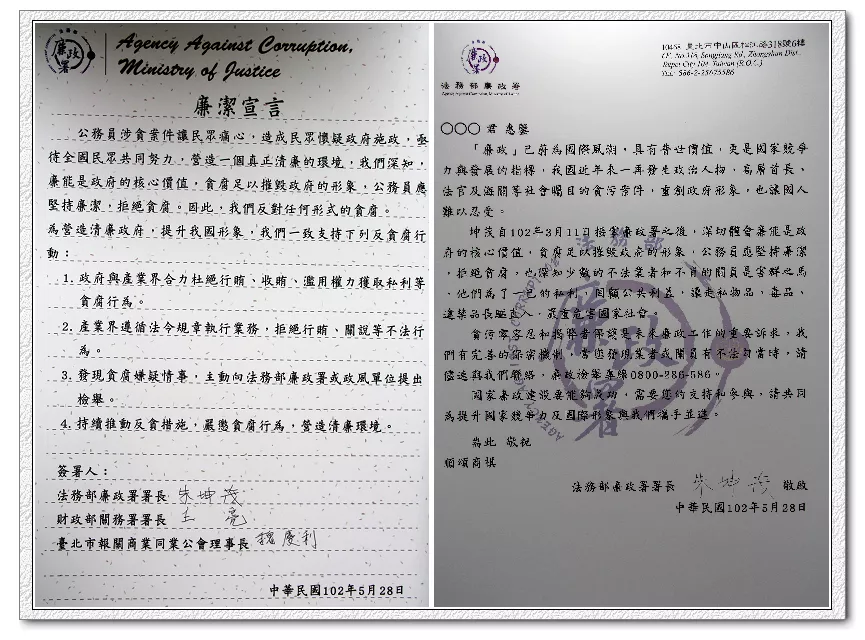 廉政署
Agency Against Corruption,
Ministry of Justice
廉潔宣言
公務員涉貪案件讓民眾痛心，造成民眾懷疑政府施政，亟
待全國民眾共同努力，營造一個真正清廉的環境，我們深知，
廉能是政府的核心價值，貪腐足以摧毀政府的形象，公務員應
堅持廉潔，拒絕貪腐。因此，我們反對任何形式的貪腐。
為營造清廉政府，提升我國形象，我們一致支持下列反貪腐行
動：
1. 政府與產業界合力杜絕行賄、收賄、濫用權力獲取私利等
貪腐行為。
2. 產業界遵循法令規章執行業務，拒絕行賄、關說等不法行
為。
3. 發現貪腐嫌疑情事，主動向法務部廉政署或政風單位提出
檢舉。
4. 持續推動反貪措施，嚴懲貪腐行為，營造清廉環境。
簽署人：
法務部廉政署署長 朱坤茂
財政部關務署署長 王亮
臺北市報關商業同業公會理事長
中華民國102年5月28日
廉政署
法務部廉政署
Agency Against Corruption, Ministry of Justice
10458 臺北市中山區松江路318號6樓
6F., No.318, Songjiang Rd., Zhongshan Dist.,
Taipei City 104, Taiwan (R.O.C.)
Tel: 886-2-25675586
○○○ 君 惠鑒
「廉政」已蔚為國際風潮，具有普世價值，更是國家競爭
力與發展的指標，我國近年來一再發生政治人物、高層首長、
法官及海關等社會矚目的貪污案件，重創政府形象，也讓國人
難以忍受。
坤茂自102年3月11日接掌廉政署之後，深切體會廉能是政
府的核心價值，貪腐足以摧毀政府的形象，公務員應堅持廉潔
，拒絕貪腐，也深知少數的不法業者和不肖的關員是害群之馬
，他們為了一己的私利，罔顧公共利益，讓走私物品、毒品、
違禁品長驅直入，嚴重危害國家社會。
貪污零容忍和揭弊者保護是未來廉政工作的重要訴求，我
們有完善的保密機制，當您發現業者或關員有不法勾當時，請
儘速與我們聯絡，廉政檢舉專線0800-286-586。
國家廉政建設要能夠成功，需要您的支持和參與，請共同
為提升國家競爭力及國際形象與我們攜手並進。
耑此 敬祝
順頌商祺
法務部廉政署署長 朱坤茂 敬啟
中華民國102年5月28日